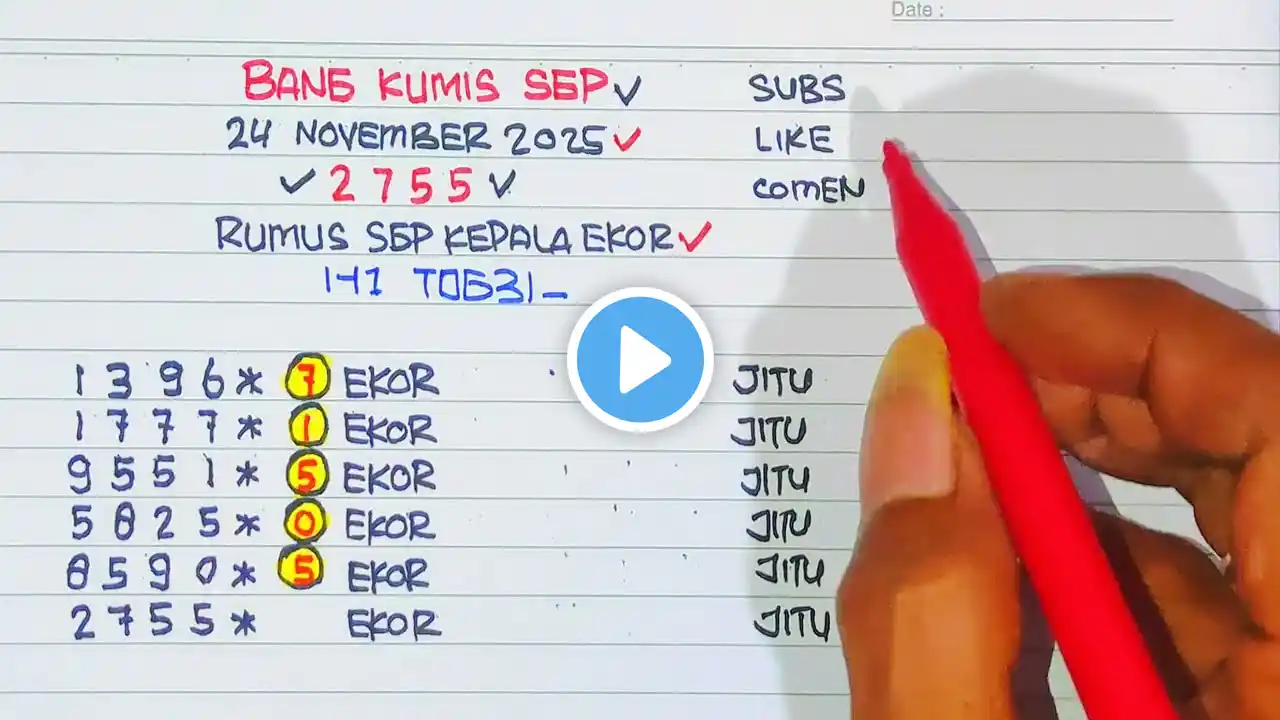 Date :
BANG KUMIS SGP✓ SUBS
24 NOVEMBER 2025✓ LIKE
✓ 2755 ✓ COMEN
RUMUS SGP KEPALA EKOR✓
141 TOG31_
1396* 7 EKOR JITU
1777* 1 EKOR JITU
9551* 5 EKOR JITU
5825* 0 EKOR JITU
8590* 5 EKOR JITU
2755* EKOR JITU